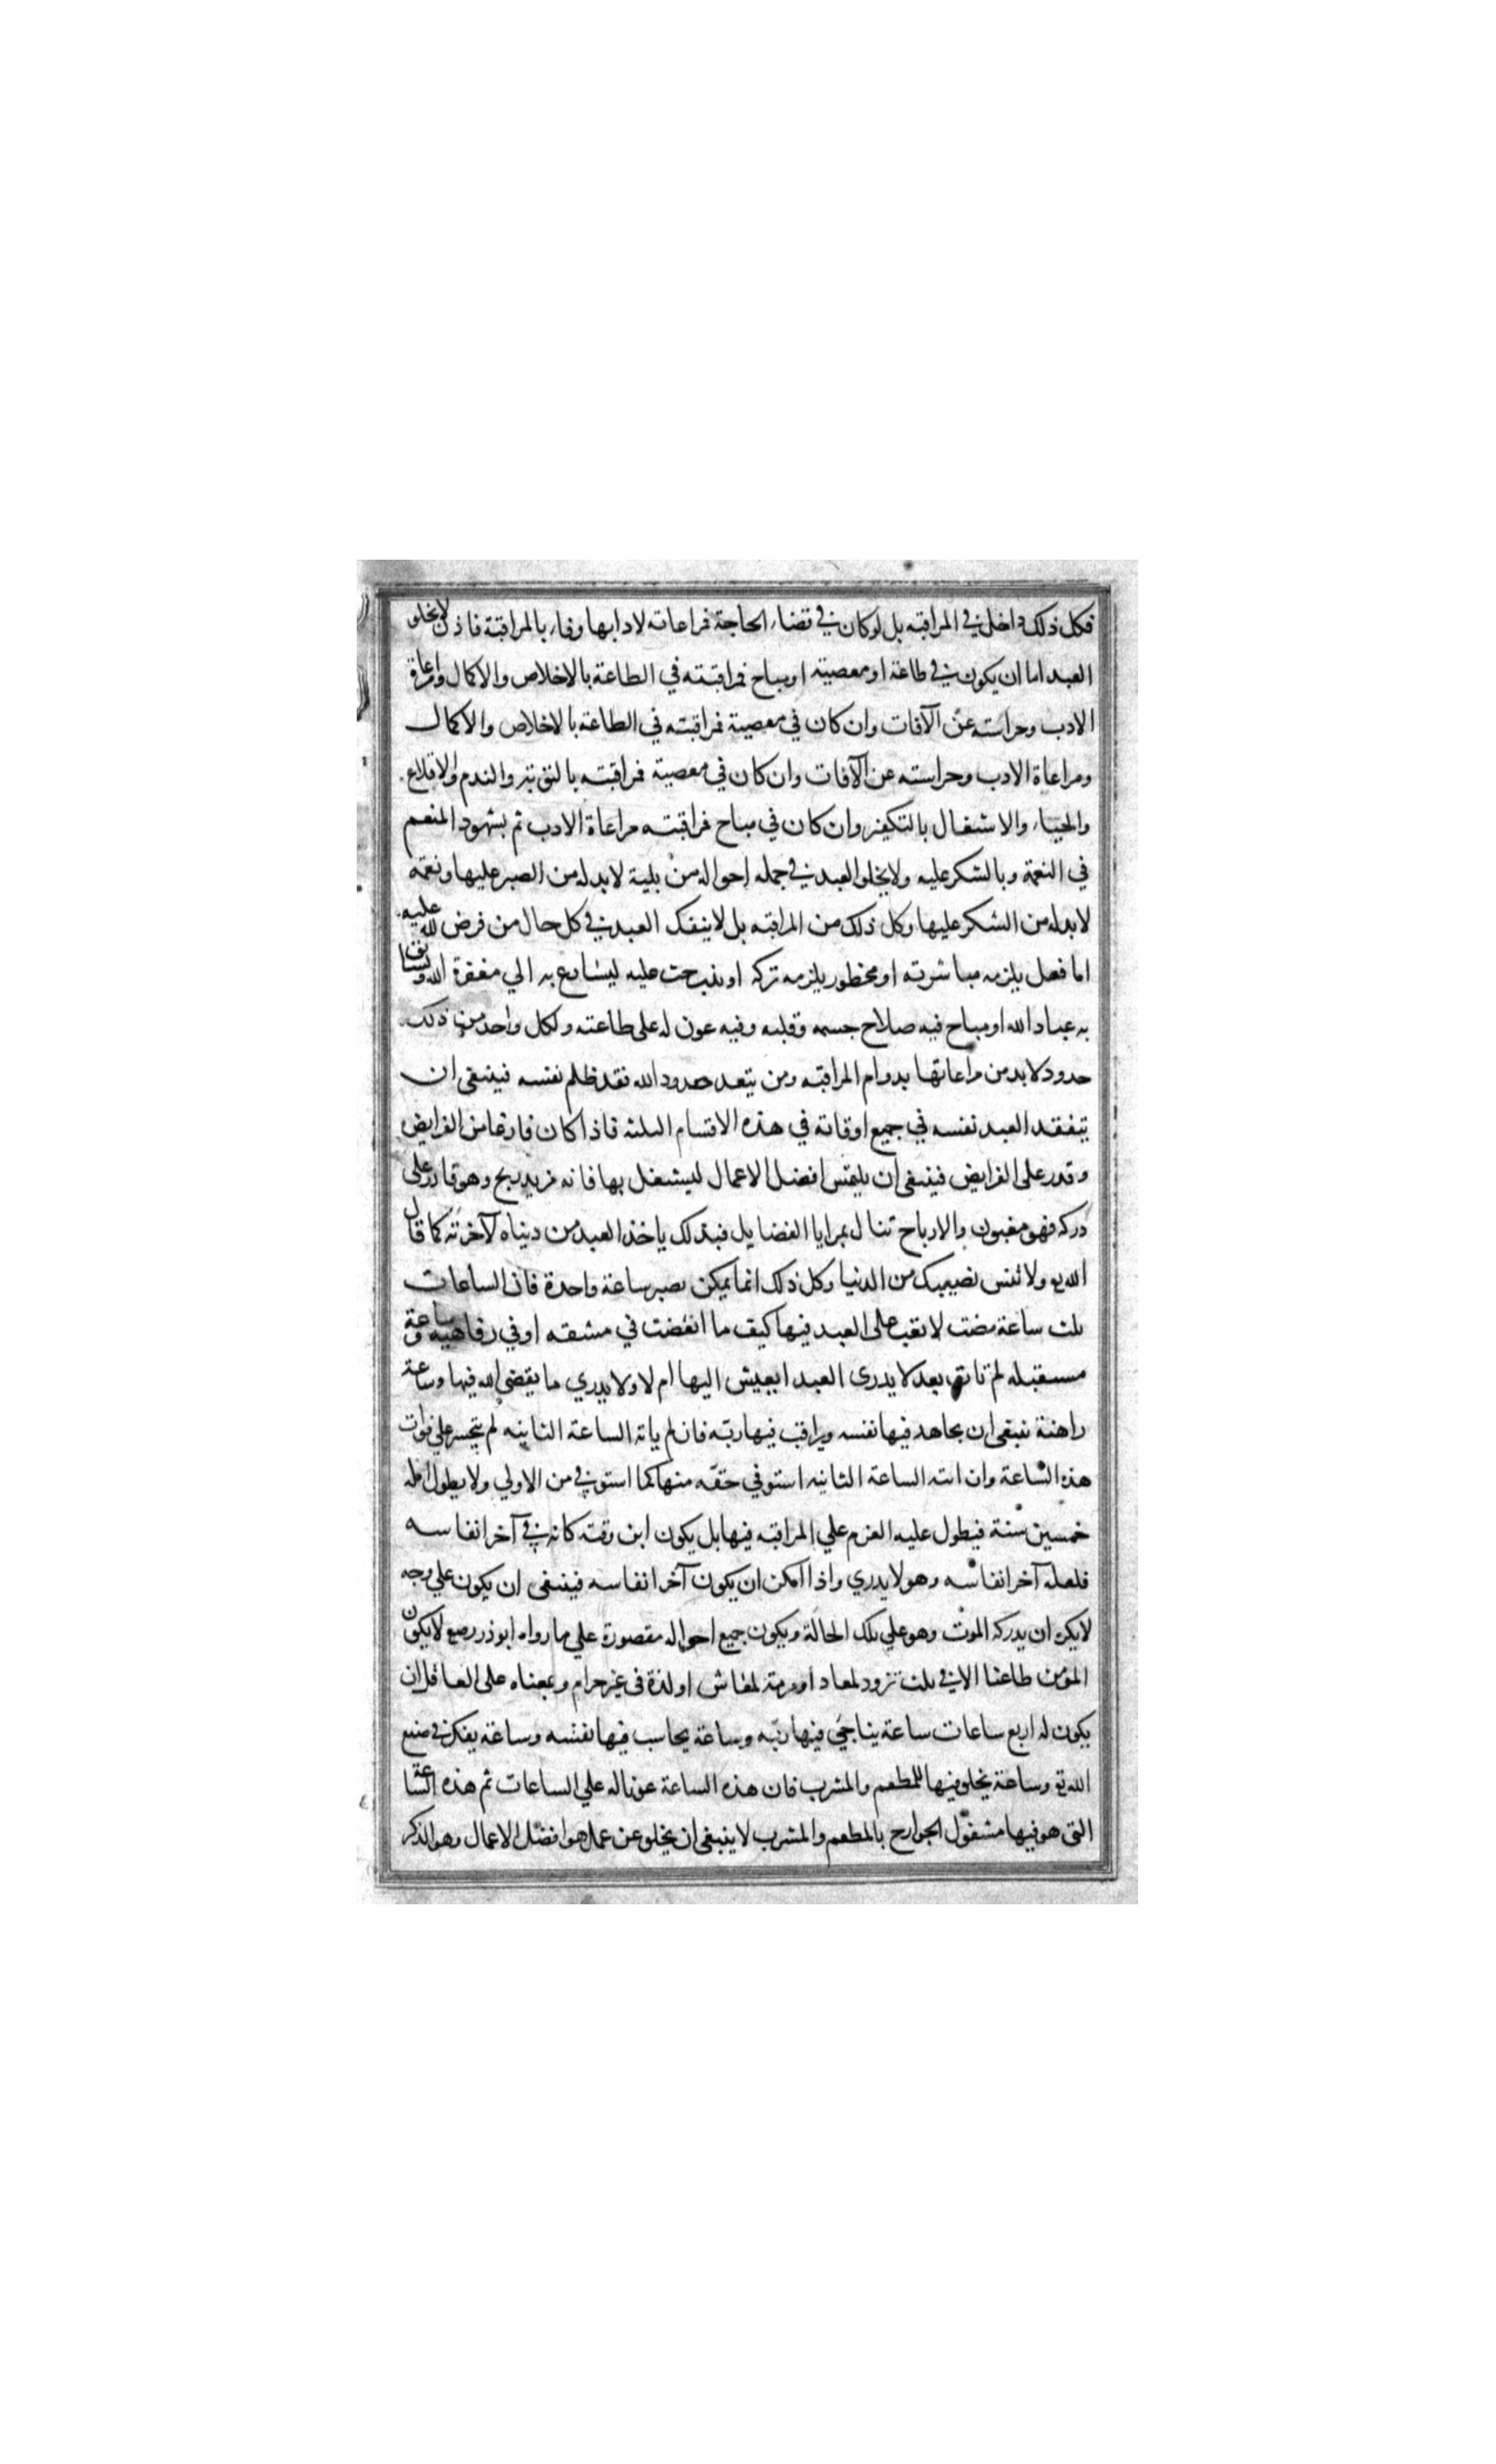 فكل ذلك داخل في المراقبه بل لو كان في قضاء الحاجة فمراعاته لادابها وفاء بالمراقبة فاذن لا يخلو
العبد اما ان يكون في طاعة او معصية او مباح فمراقبته في الطاعة بالاخلاص والاكمال ومراعاة
الادب وحراسته عن الآفات وان كان في معصية فمراقبته في الطاعة بالاخلاص والاكمال
ومراعاة الادب وحراسته عن الآفات وان كان في معصية فمراقبته بالتوبة والندم والاقلاع
والحياء والاشتغال بالتكفير وان كان في مباح فمراقبته مراعاة الادب ثم بشهود المنعم
في النعمة وبالشكر عليه ولا يخلو العبد في جمله احواله من بلية لا بد له من الصبر عليها ونعمه
لا بد له من الشكر عليها وكل ذلك من المراقبه بل لا ينفك العبد في كل حال من فرض لله عليه
اما فعل يلزمه مباشرته او محظور يلزمه تركه او ندب حث عليه ليسارع به الي مغفرة الله ويسابق
به عباد الله او مباح فيه صلاح جسمه وقلبه وفيه عون له على طاعته ولكل واحد من ذلك
حدود لا بد من مراعاتها بدوام المراقبه ومن يتعد حدود الله فقد ظلم نفسه فينبغى ان
يتفقد العبد نفسه في جميع اوقاته في هذه الاقسام الثلثه فاذا كان فارغا من الفرايض
وقدر على الفرايض فينبغى ان يلتمس افضل الاعمال ليشتغل بها فانه مزيد ربح وهو قادر على
دركه فهو مغبون والارباح تنال بمزايا الفضايل فبذلك ياخذ العبد من دنياه لآخرته كما قال
الله تع ولا تنس نصيبك من الدنيا وكل ذلك انما يمكن بصبر ساعة واحدة فان الساعات
ثلث ساعة مضت لا تعب على العبد فيها كيف ما انقضت في مشقه او في رفاهيه وساعة
مستقبله لم تات بعد لا يدرى العبد ايعيش اليها ام لا ولا يدري ما يقضي الله فيها وساعة
راهنة ينبغى ان يجاهد فيها نفسه ويراقب فيها ربّه فان لم ياته الساعة الثانيه لم يتحسر علي فوات
هذه الساعة وان اتته الساعة الثانيه استوفي حقّه منها كما استوفي من الاولي ولا يطول امله
خمسين سنة فيطول عليه العزم علي المراقبه فيها بل يكون ابن وقته كانه في آخر انفاسه
فلعله آخر انفاسه وهو لا يدري واذا امكن ان يكون آخر انفاسه فينبغى ان يكون علي وجه
لا يكره ان يدركه الموت وهو علي تلك الحالة ويكون جميع احواله مقصورة علي ما رواه ابوذر رضع لا يكون
المؤمن طاعنا الا في ثلث تزود لمعاد او مرمة لمعاش او لذة فى غير حرام وبمعناه على العاقل ان
يكون له اربع ساعات ساعة يناجي فيها ربّه وساعة يحاسب فيها نفسه وساعة يفكر في صنع
الله تع وساعة يخلو فيها للمطعم والمشرب فان هذه الساعة عونا له علي الساعات ثم هذه الساعة
التى هو فيها مشغول الجوارح بالمطعم والمشرب لا ينبغى ان يخلو عن عمل هو افضل الاعمال وهو الذكر